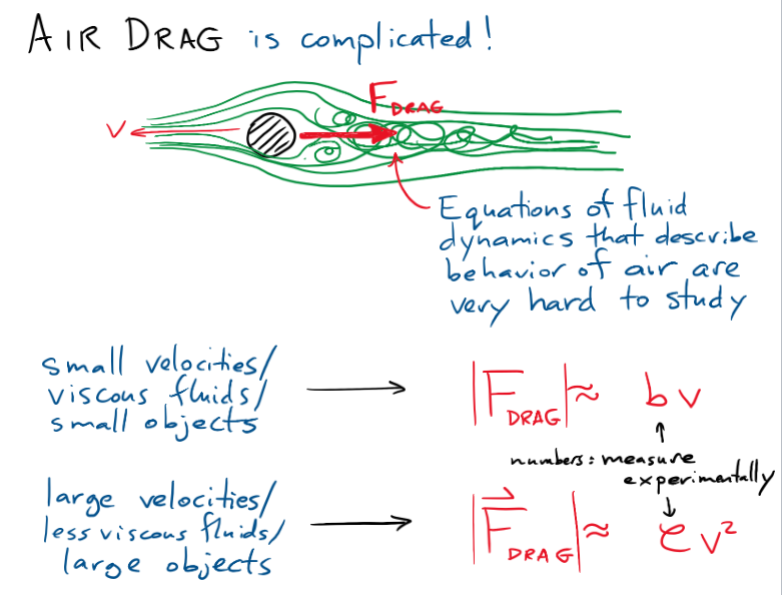 AIR DRAG is complicated!
F DRAG
V
Equations of fluid
dynamics that describe
behavior of air are
very hard to study
small velocities/
viscous fluids/
small objects
|F DRAG| ≈ b v
numbers: measure
experimentally
large velocities/
less viscous fluids/
large objects
|F⃗ DRAG| ≈ c v²